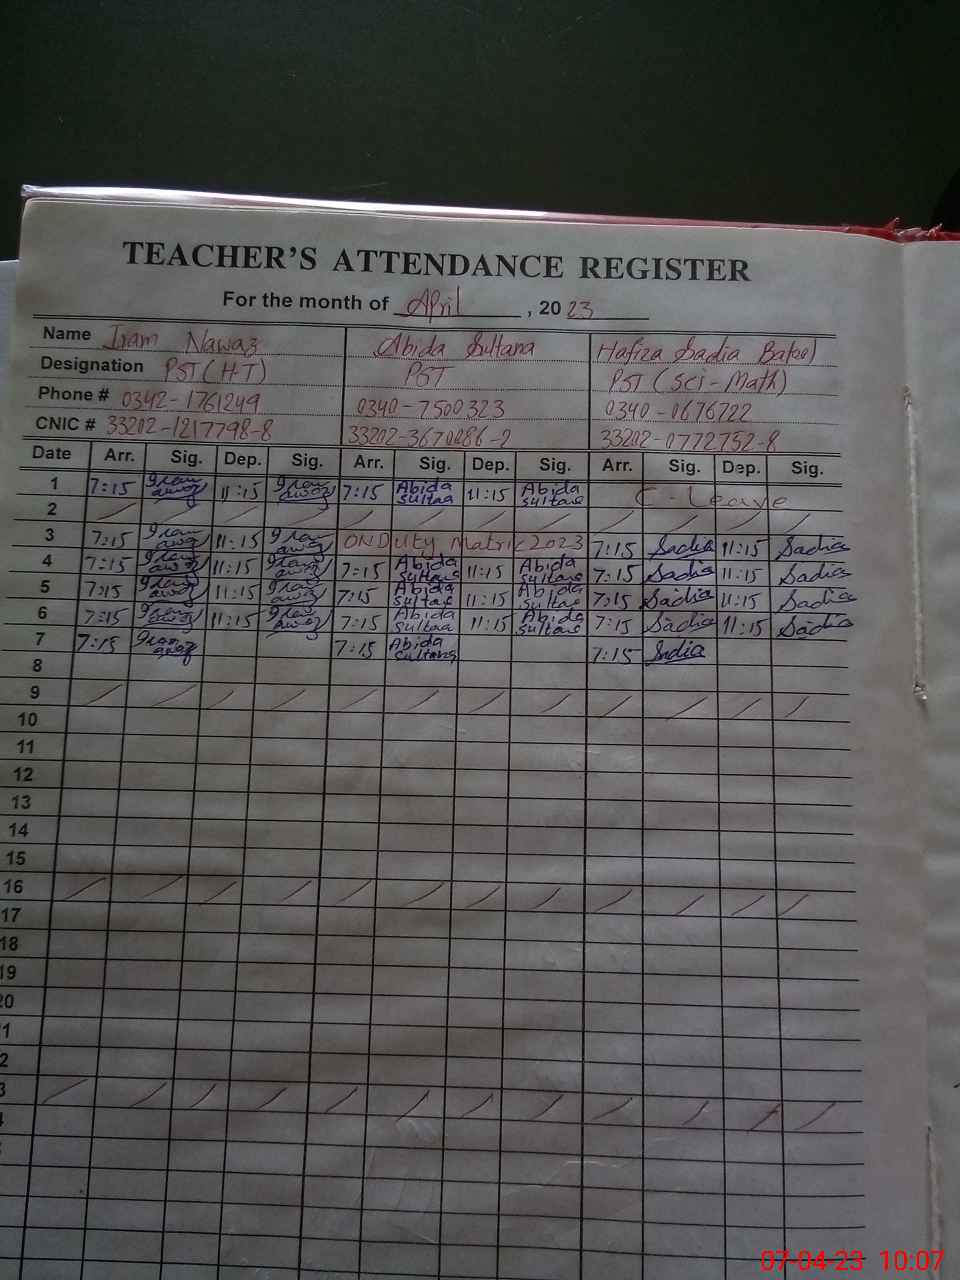 TEACHER'S ATTENDANCE REGISTER
For the month of April , 20 23
Name Iram Nawaz Abida Sultana Hafiza Sadia Batool
Designation PST (H-T) PST PST (Sci-Math)
Phone # 0342-1761249 0340-7500323 0340-0676722
CNIC # 33202-1217798-8 33202-3670086-2 33202-0772752-8
Date Arr. Sig. Dep. Sig. Arr. Sig. Dep. Sig. Arr. Sig. Dep. Sig.
1 7:15 Iram Nawaz 11:15 Iram Nawaz 7:15 Abida Sultana 11:15 Abida Sultana C-Leave
2
3 7:15 Iram Nawaz 11:15 Iram Nawaz ON Duty Matric 2023 7:15 Sadia 11:15 Sadia
4 7:15 Iram Nawaz 11:15 Iram Nawaz 7:15 Abida Sultana 11:15 Abida Sultana 7:15 Sadia 11:15 Sadia
5 7:15 Iram Nawaz 11:15 Iram Nawaz 7:15 Abida Sultana 11:15 Abida Sultana 7:15 Sadia 11:15 Sadia
6 7:15 Iram Nawaz 11:15 Iram Nawaz 7:15 Abida Sultana 11:15 Abida Sultana 7:15 Sadia 11:15 Sadia
7 7:15 Iram Nawaz 7:15 Abida Sultana 7:15 Sadia
8
9
10
11
12
13
14
15
16
17
18
19
20
07-04-23 10:07